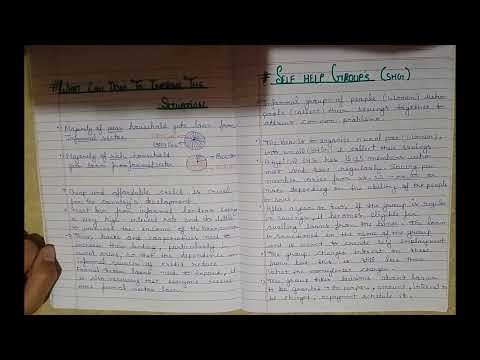 # What Can Done To Improve The
Situation
• Majority of poor household gets loan from
informal sector
• Majority of rich household
get loan from formal sector
• Cheap and affordable credit is crucial
for the country's development.
• loan from informal lenders carry
a very high interest rate and do little
to increase the income of the borrowers
• Thus, banks and cooperatives need to
increase their lending, particularly in
rural areas, so that the dependence on
informal sources of credit reduce
• formal sector loans need to expand, it
is also necessary that everyone receives
more formal sector loan.
# Self Help Groups (SHG)
Informal groups of people (women) who
pools (collect) their savings together to
address common problems.
• The idea is to organise rural poor (women)
into small (SHG) & collect their savings
• A typical SHG has 15-20 members who
meet and save regularly. Saving per
member varies from
more depending on the ability of the people
to save.
• After a year or two, if the group is regular
in savings, it becomes eligible for
availing loans from the banks. The loan
is sanctioned in the name of the group
and is meant to create self employment
• The group charges interest on these
loans but this is still less than
what the moneylender charges.
• The group takes decisions about loans
to be granted - the purpose, amount, interest to
be charged, repayment schedule it.